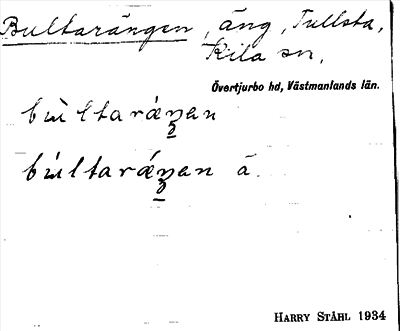 Bultarängen, äng, Tullsta,
Kila sn,
Övertjurbo hd, Västmanlands län.
bùltaráŋen
búltaráŋen ä.
HARRY STÅHL 1934